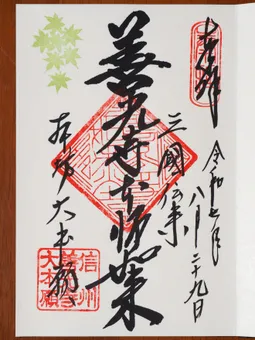 奉拝
令和七年
八月二十九日
三國伝来
善光寺本師如来
大本願
信州
善光寺
大本願